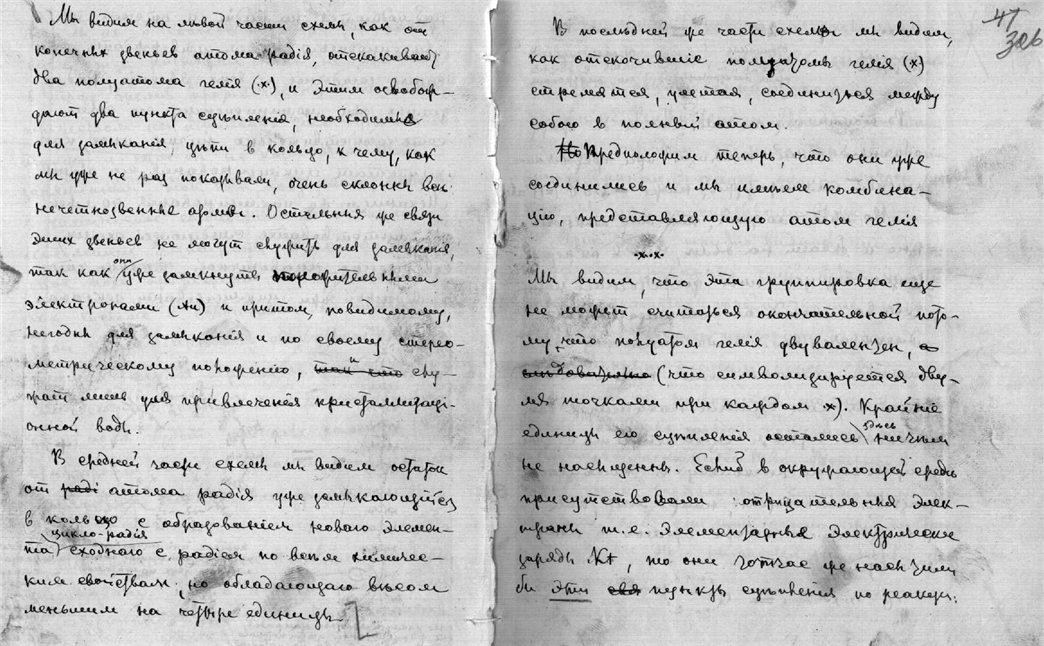 Мы видимъ на лѣвой части схемы, какъ отъ
конечныхъ звеньевъ атома радія, отскакиваютъ
два полуатома гелія (·x·), и этимъ освобож-
даютъ два пункта сцѣпленія, необходимые
для замыканія цѣпи в кольцо, к чему, как
мы уже не раз показывали, очень склонны всѣ
нечетнозвенные архивы. Остальныя же связи
этихъ звеньевъ не могут служить для замыканія,
так как они уже замкнуты положительными
электронами и притом, повидимому,
негодны для замыканія и по своему стерео-
метрическому положенію, и слу-
жат лишь для привлеченія кристаллизаці-
онной воды.
В средней части схемы мы видим остаток
от атома радія уже замыкающійся
в кольцо с образованіем новаго элемен-
цикло-радія
та сходного с радіем по всѣм химичес-
ким свойствам, но обладающаго вѣсом
меньшим на четыре единицы.
41
306
В послѣдней же части схемы мы видим,
как отскочившіе полуатомы гелія (x)
стремятся, улетая, соединиться между
собою в полный атом.
Предположим теперь, что они уже
соединились и мы имѣем комбина-
цію, представляющую атом гелія
·x·x·
Мы видим, что эта группировка еще
не может считаться окончательной пото-
му, что полуатом гелія двувалентен,
(что символизируется дву-
мя точками при каждом x). Крайніе
единицы его сцѣпленія остались здѣсь ничѣм
не насыщены. Если б в окружающей средѣ
присутствовали отрицательные элек-
троны т.е. элементарные электрические
заряды, то они тотчас же насытили
бы эти пункты сцѣпленія по реакціи: